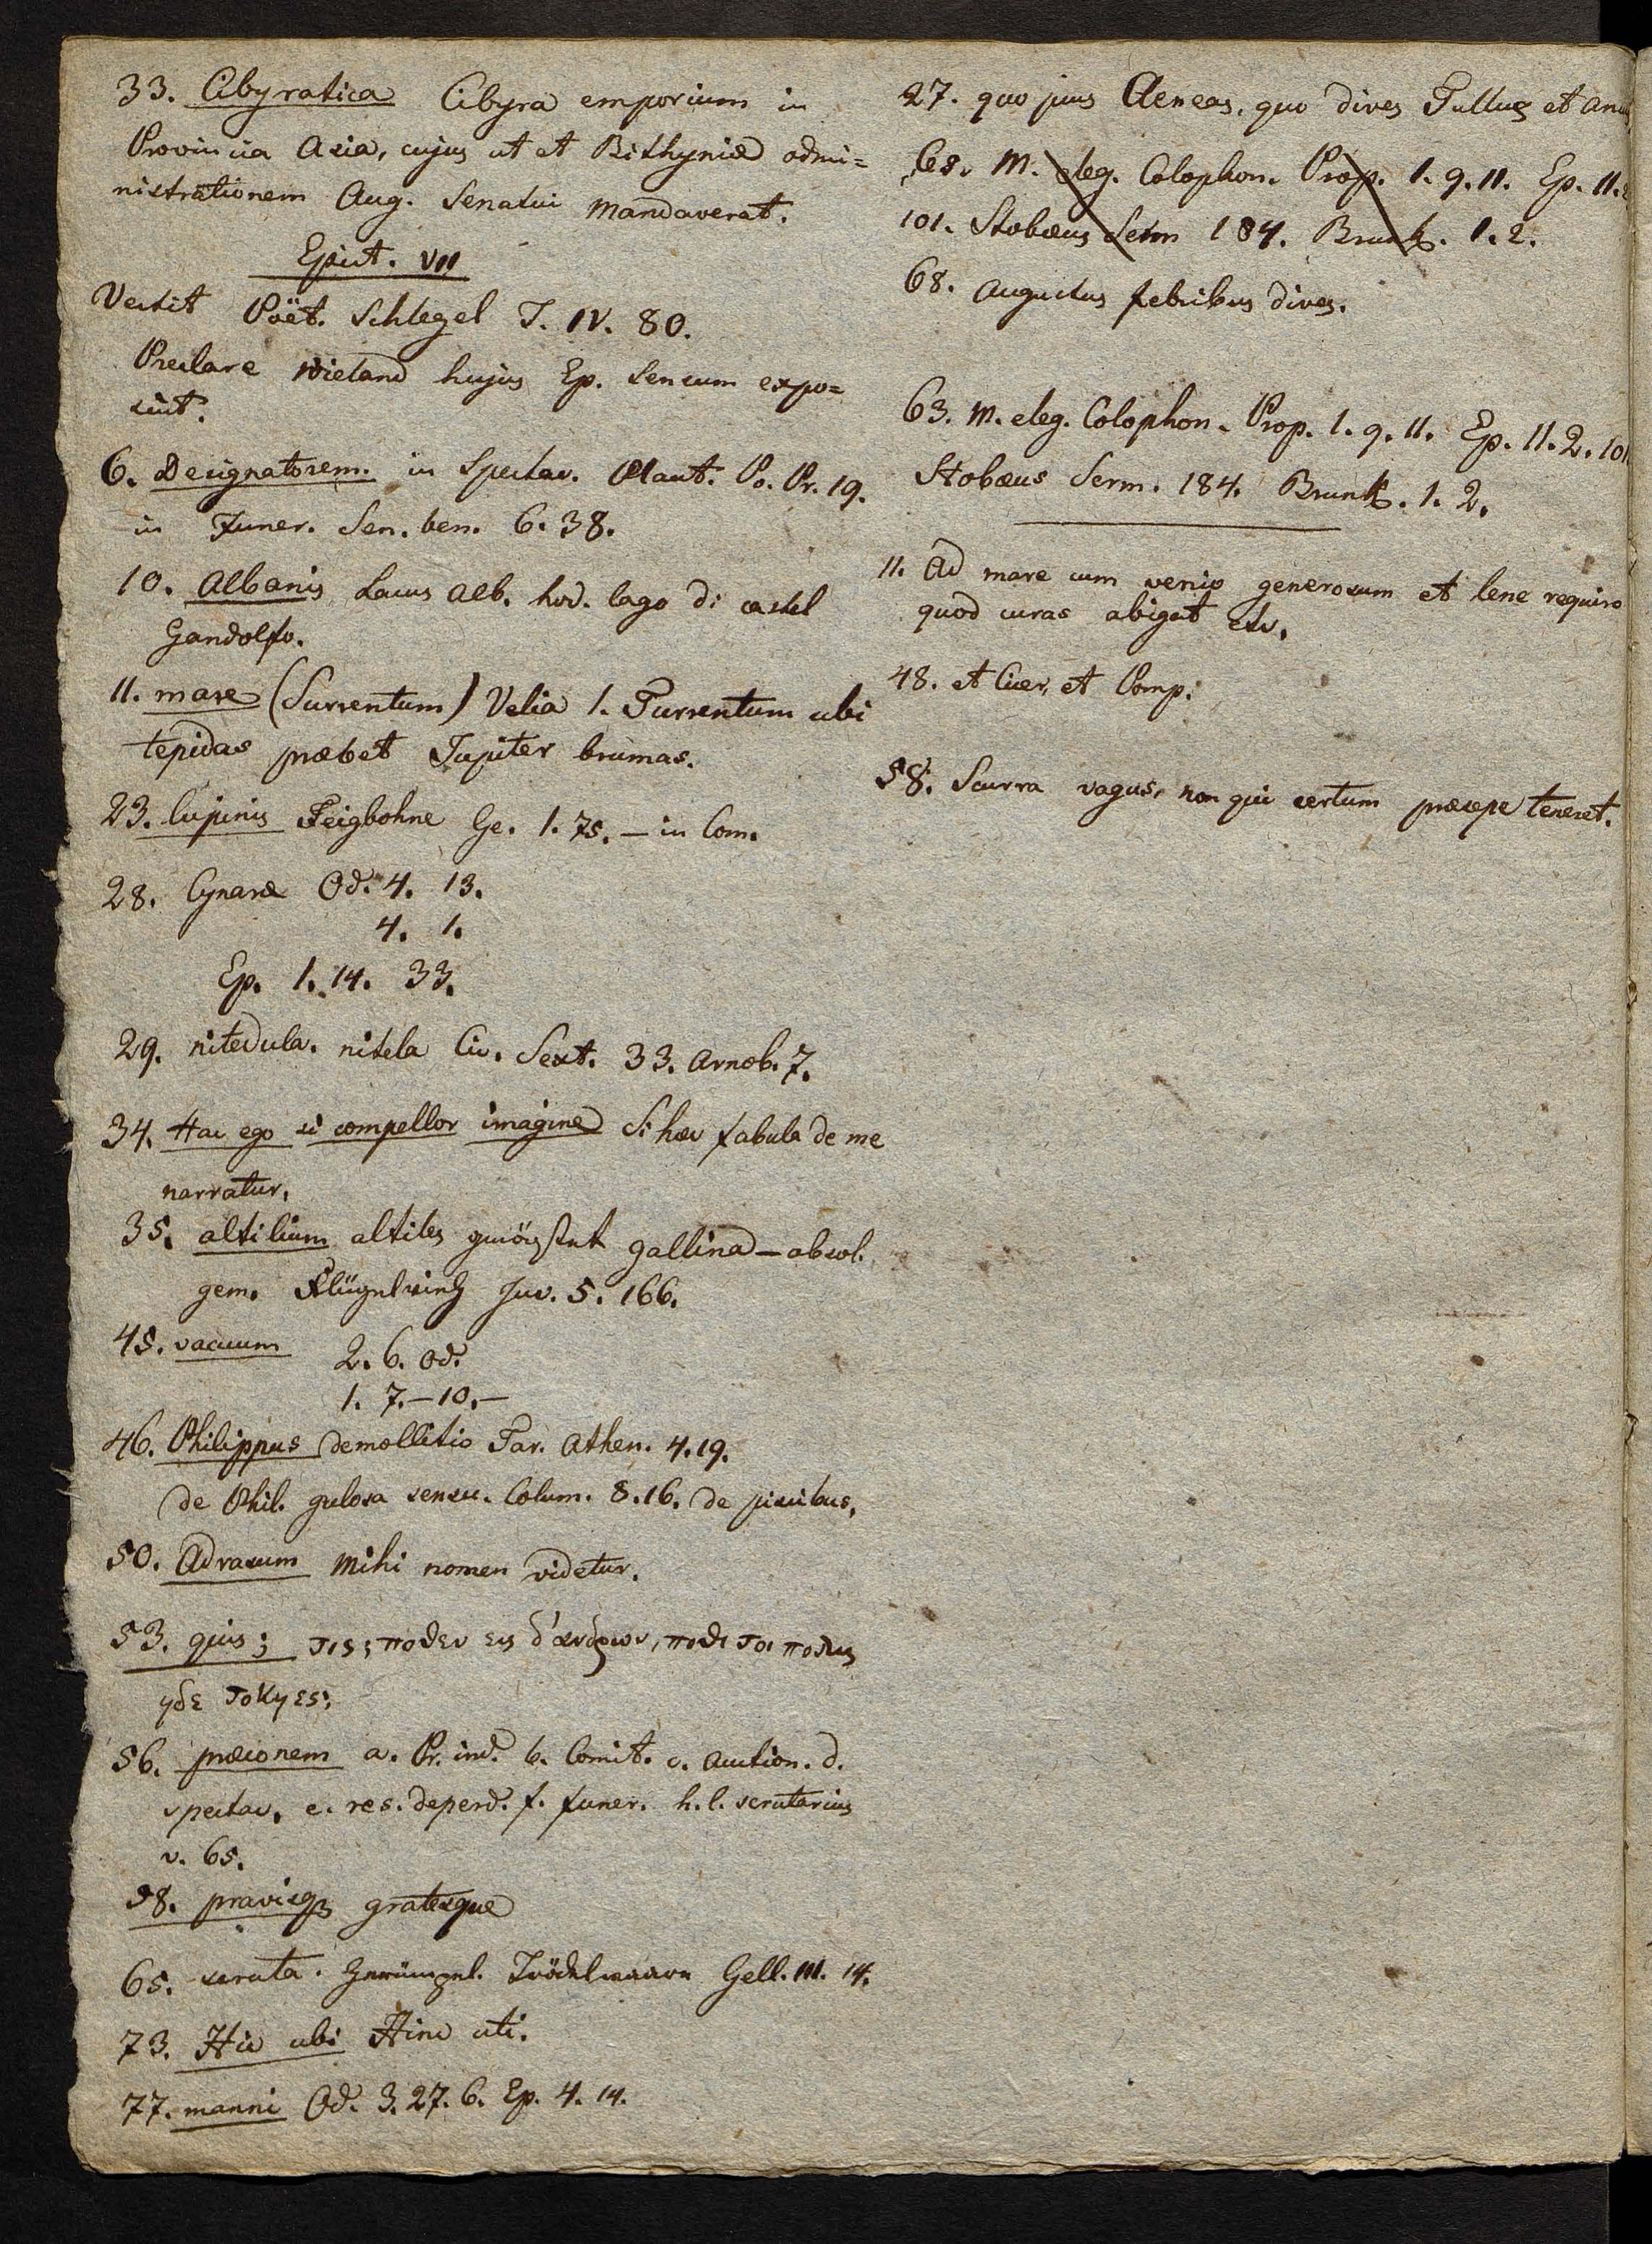 33. Cibyratica Cibyra emporium in
Provincia Asia, cujus ut et Bithyniæ admi=
nistrationem Aug. Senatui mandaverat.
Epist. VII
Vertit Poët. Schlegel T. IV. 80.
Preclare Wieland hujus Ep. sensum expo=
suit.
6. Designatorem. in Spectac. Plaut. Po. Pr. 19.
in Funer. Sen. ben. 6. 38.
10. Albanis Lacus Alb. hod. lago di castel
Gandolfo.
11. mare (Surrentum) Velia 1. Turrentum ubi
tepidas præbet Jupiter brumas.
23. lupinis Feigbohne Ge. 1. 75. – in Com.
28. Cynaræ Od. 4. 13.
4. 1.
Ep. 1. 14. 33.
29. nitedula. nitela Cic. Sext. 33. Arnob. 7.
34. Hac ego si compellor imagine Si hæc fabula de me
narratur.
35. altilium altiles gallinæ – absol.
gem. Juv. 5. 166.
45. vacuum 2. 6. Od.
1. 7. – 10. –
46. Philippus demollitio Tar. Athen. 4. 19.
de Phil. gulosa sensu. Colum. 8. 16. de piscibus.
50. Adrasum mihi nomen videtur.
53. quis; τις; ποθεν εις δ'ανδρων, ποθι τοι πολις
ηδε τοκηες;
56. præconem a. Pr. ind. b. Comit. c. Auction. d.
spectac. e. res. deperd. f. funer. h. l. scrutarius
v. 65.
58. pravisq3 gratesque
65. scruta. Gerümpel. Trödelwaare Gell. III. 14.
73. Hic ubi Hinc uti.
77. manni Od. 3. 27. 6. Ep. 4. 14.
27. quo pius Aeneas, quo dives Tullus et Ancus
M. eleg. Colophon. Prop. 1. 9. 11. Ep. 11. 2
101. Stobæus Serm 184. Brunk. 1. 2.
68. Augustus febribus dives.
63. M. eleg. Colophon. Prop. 1. 9. 11. Ep. 11. 2. 101
Stobæus Serm. 184. Brunk. 1. 2.
11. Ad mare cum venio generosum et lene requiro
quod curas abigat etc.
48. et Cicer. et Pomp.
58. Scurra vagus, non qui certum præsepe teneret.